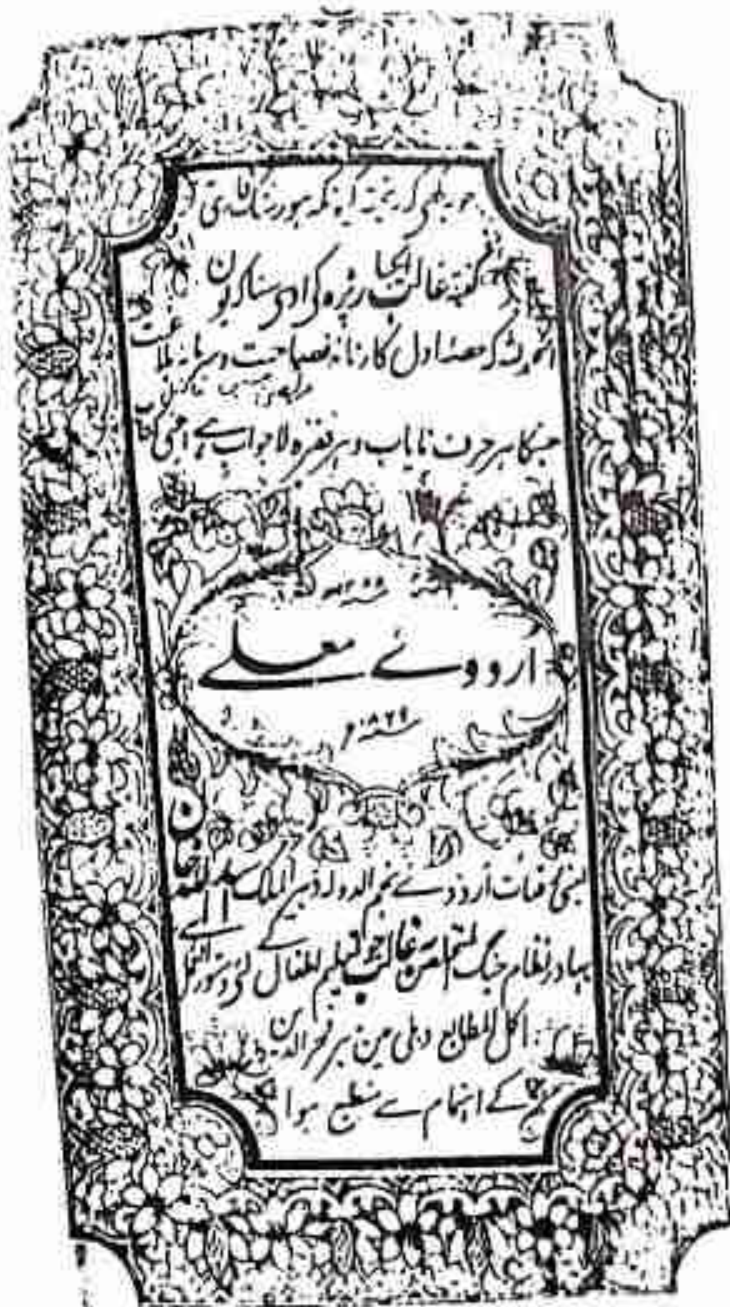 جو یہ کہی کہ ریختہ کیونکہ ہو رشک فارسی
گفتہ غالب ایکبار پڑہ کی اوسی سنا کہ یون
الحمد للہ کہ حصہ اول کارنامہ فصاحت و سرمایہ بلاغت
جسکا ہر حرف نایاب و ہر فقرہ لاجواب ہے
اردوئے معلے
سنہ ۱۸۶۹ء
یعنی رقعات اردوئے نجم الدولہ دبیر الملک اسد اللہ خان
بہادر نظام جنگ المتخلص بہ غالب جو تعلیم اطفال کے لئے دستور العمل
اکمل المطابع دہلی مین میر فخر الدین
کے اہتمام سے منطبع ہوا